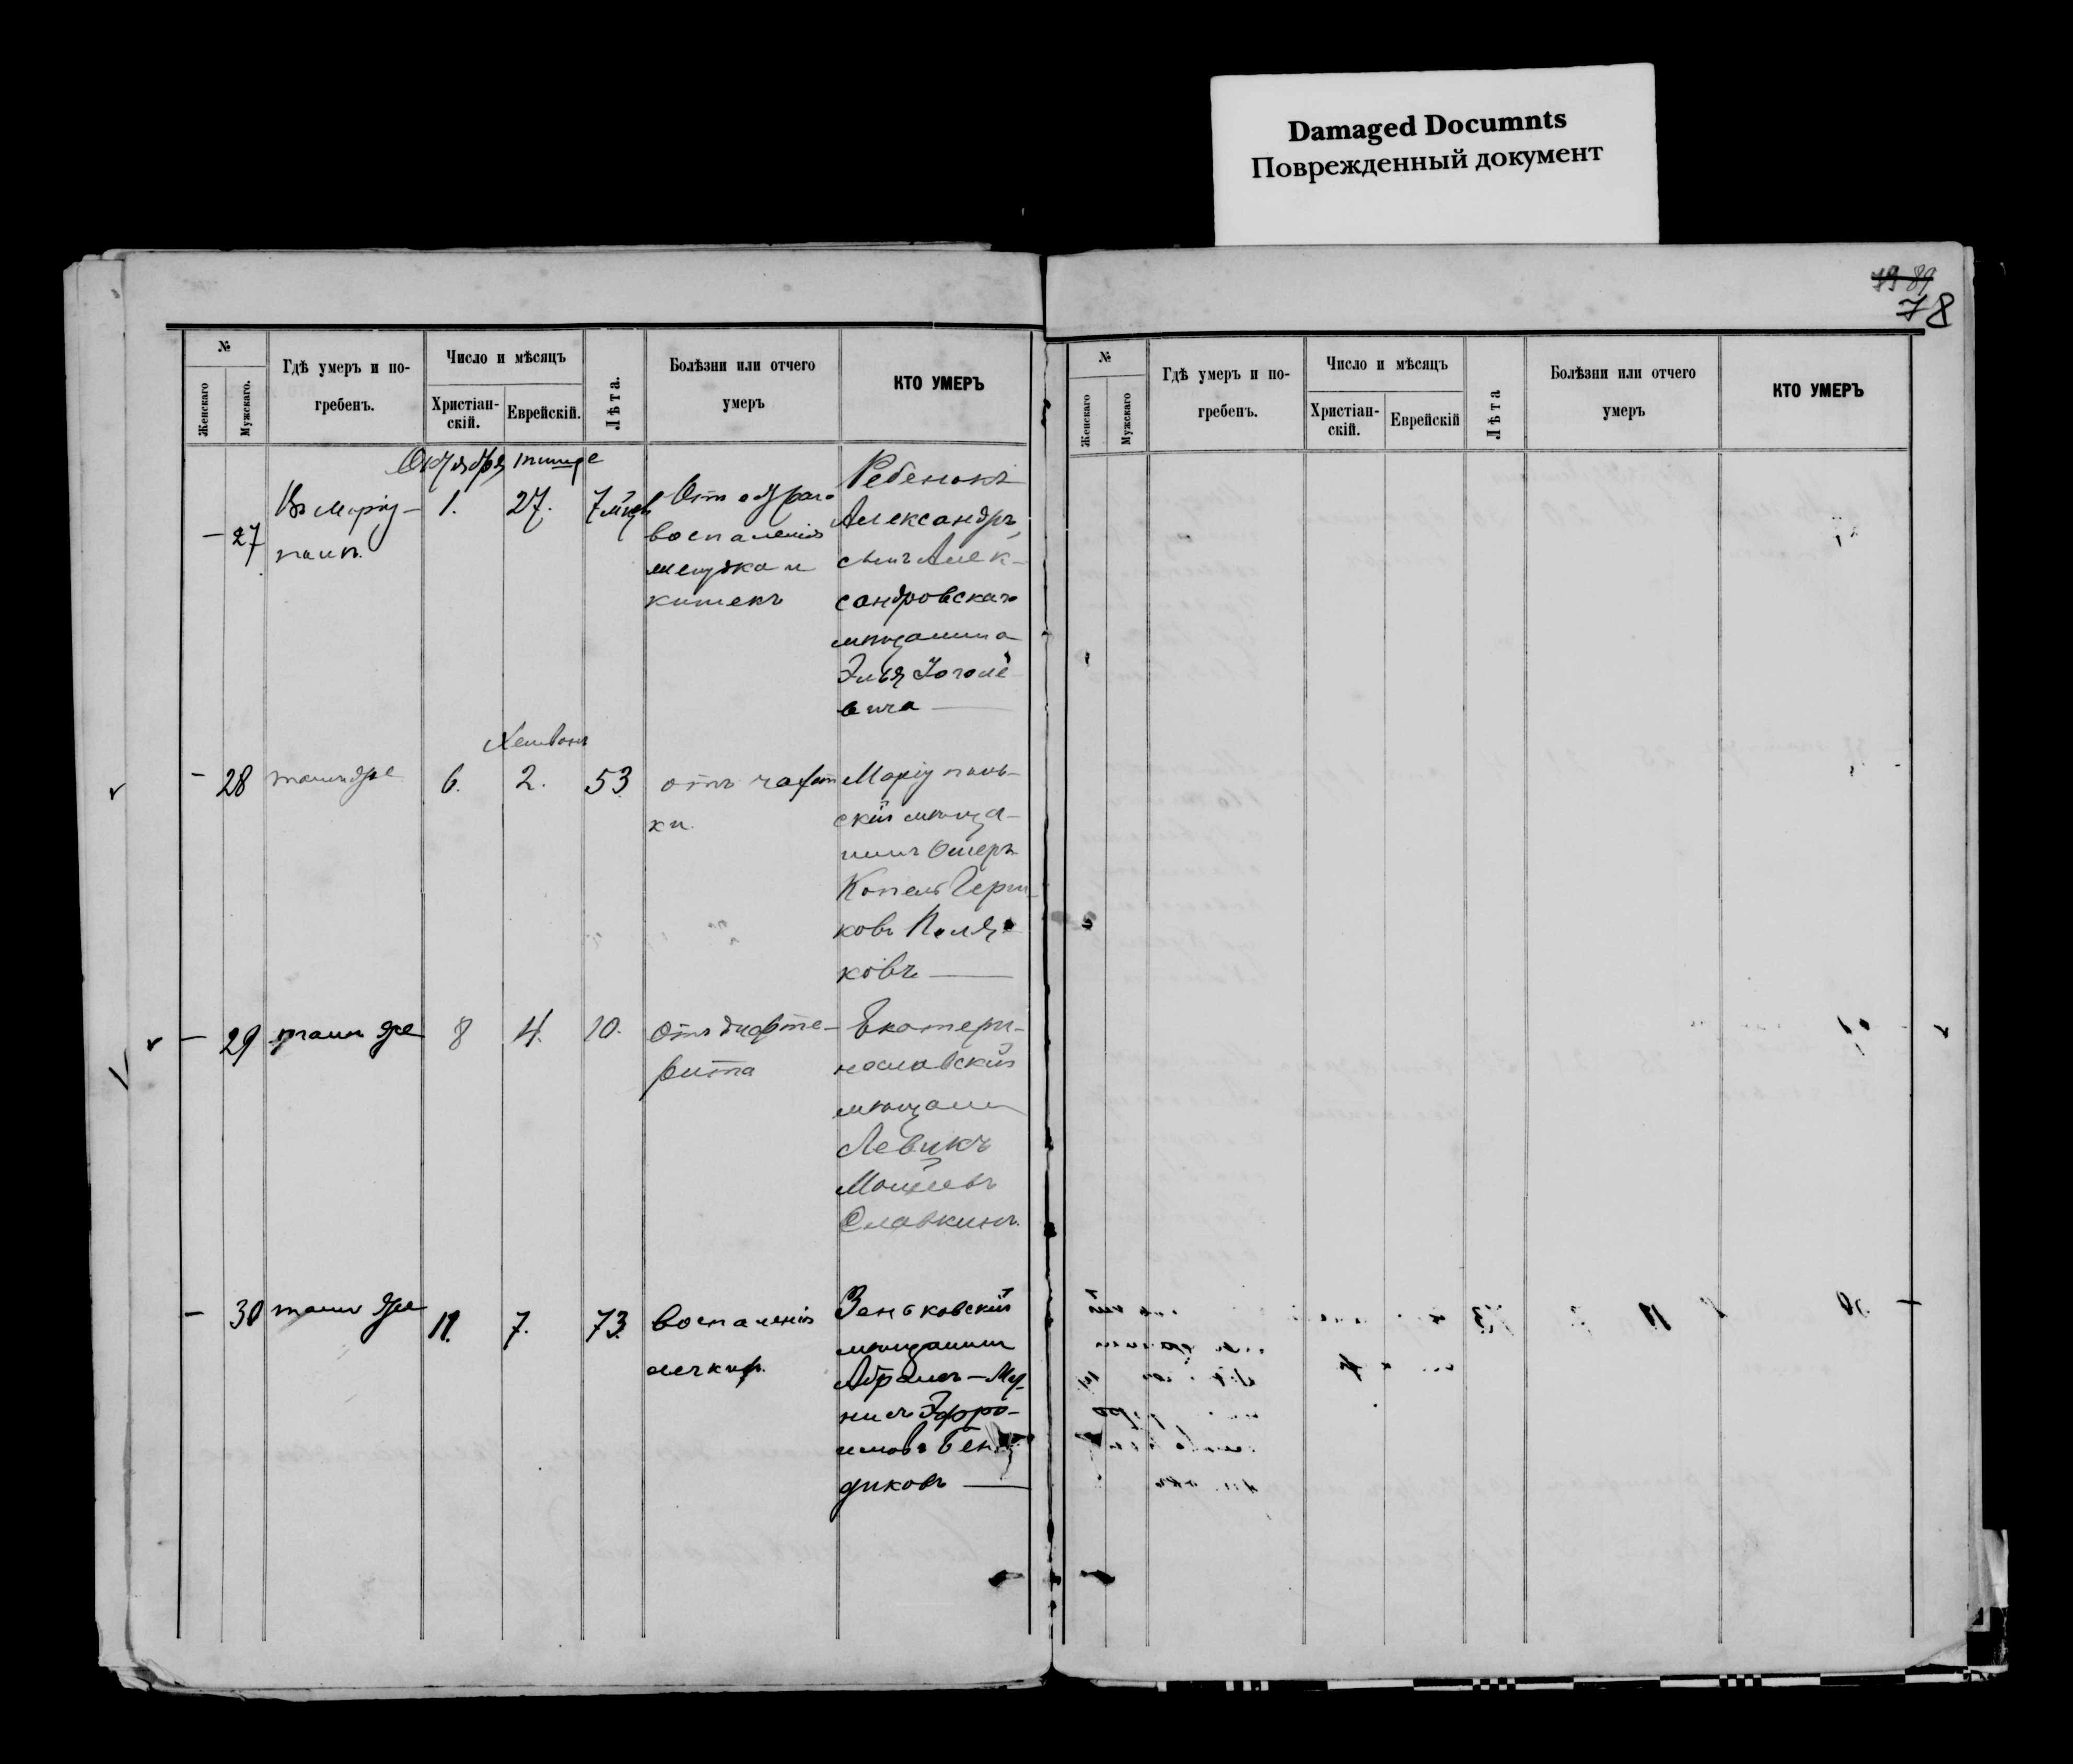 Damaged Documnts
Поврежденный документ
79 89
78
№
Женскаго
Мужскаго.
Гдѣ умеръ и по-
гребенъ.
Число и мѣсяцъ
Христіан-
скій.
Еврейскій.
Лѣта.
Болѣзни или отчего
умеръ
КТО УМЕРЪ
Октября тишре
— 27
Въ Маріу-
полѣ.
1.
27.
7 мѣс
Отъ остраго
воспаленія
желудка и
кишекъ
Ребенокъ
Александръ,
сынъ Алек-
сандровскаго
мѣщанина
Эльи
вича —
Хешвонъ
— 28
тамъ же
6.
2.
53
отъ чахот
ки.
Маріуполь-
скій мѣща-
нинъ Ошеръ
Копель Герш-
ковъ Поля-
ковъ —
— 29
тамъ же
8
4.
10.
Отъ дифте-
рита
Екатери-
нославскій
мѣщанин
Левикъ
Славкинъ.
— 30
тамъ же
11.
7.
73
воспаленія
легкихъ
Зеньковскій
мѣщанинъ
Абрамъ-Му-
нисъ Эфро-
имовъ Бен
диковъ —
№
Женскаго
Мужскаго
Гдѣ умеръ и по-
гребенъ.
Число и мѣсяцъ
Христіан-
скій.
Еврейскій
Лѣта
Болѣзни или отчего
умеръ
КТО УМЕРЪ